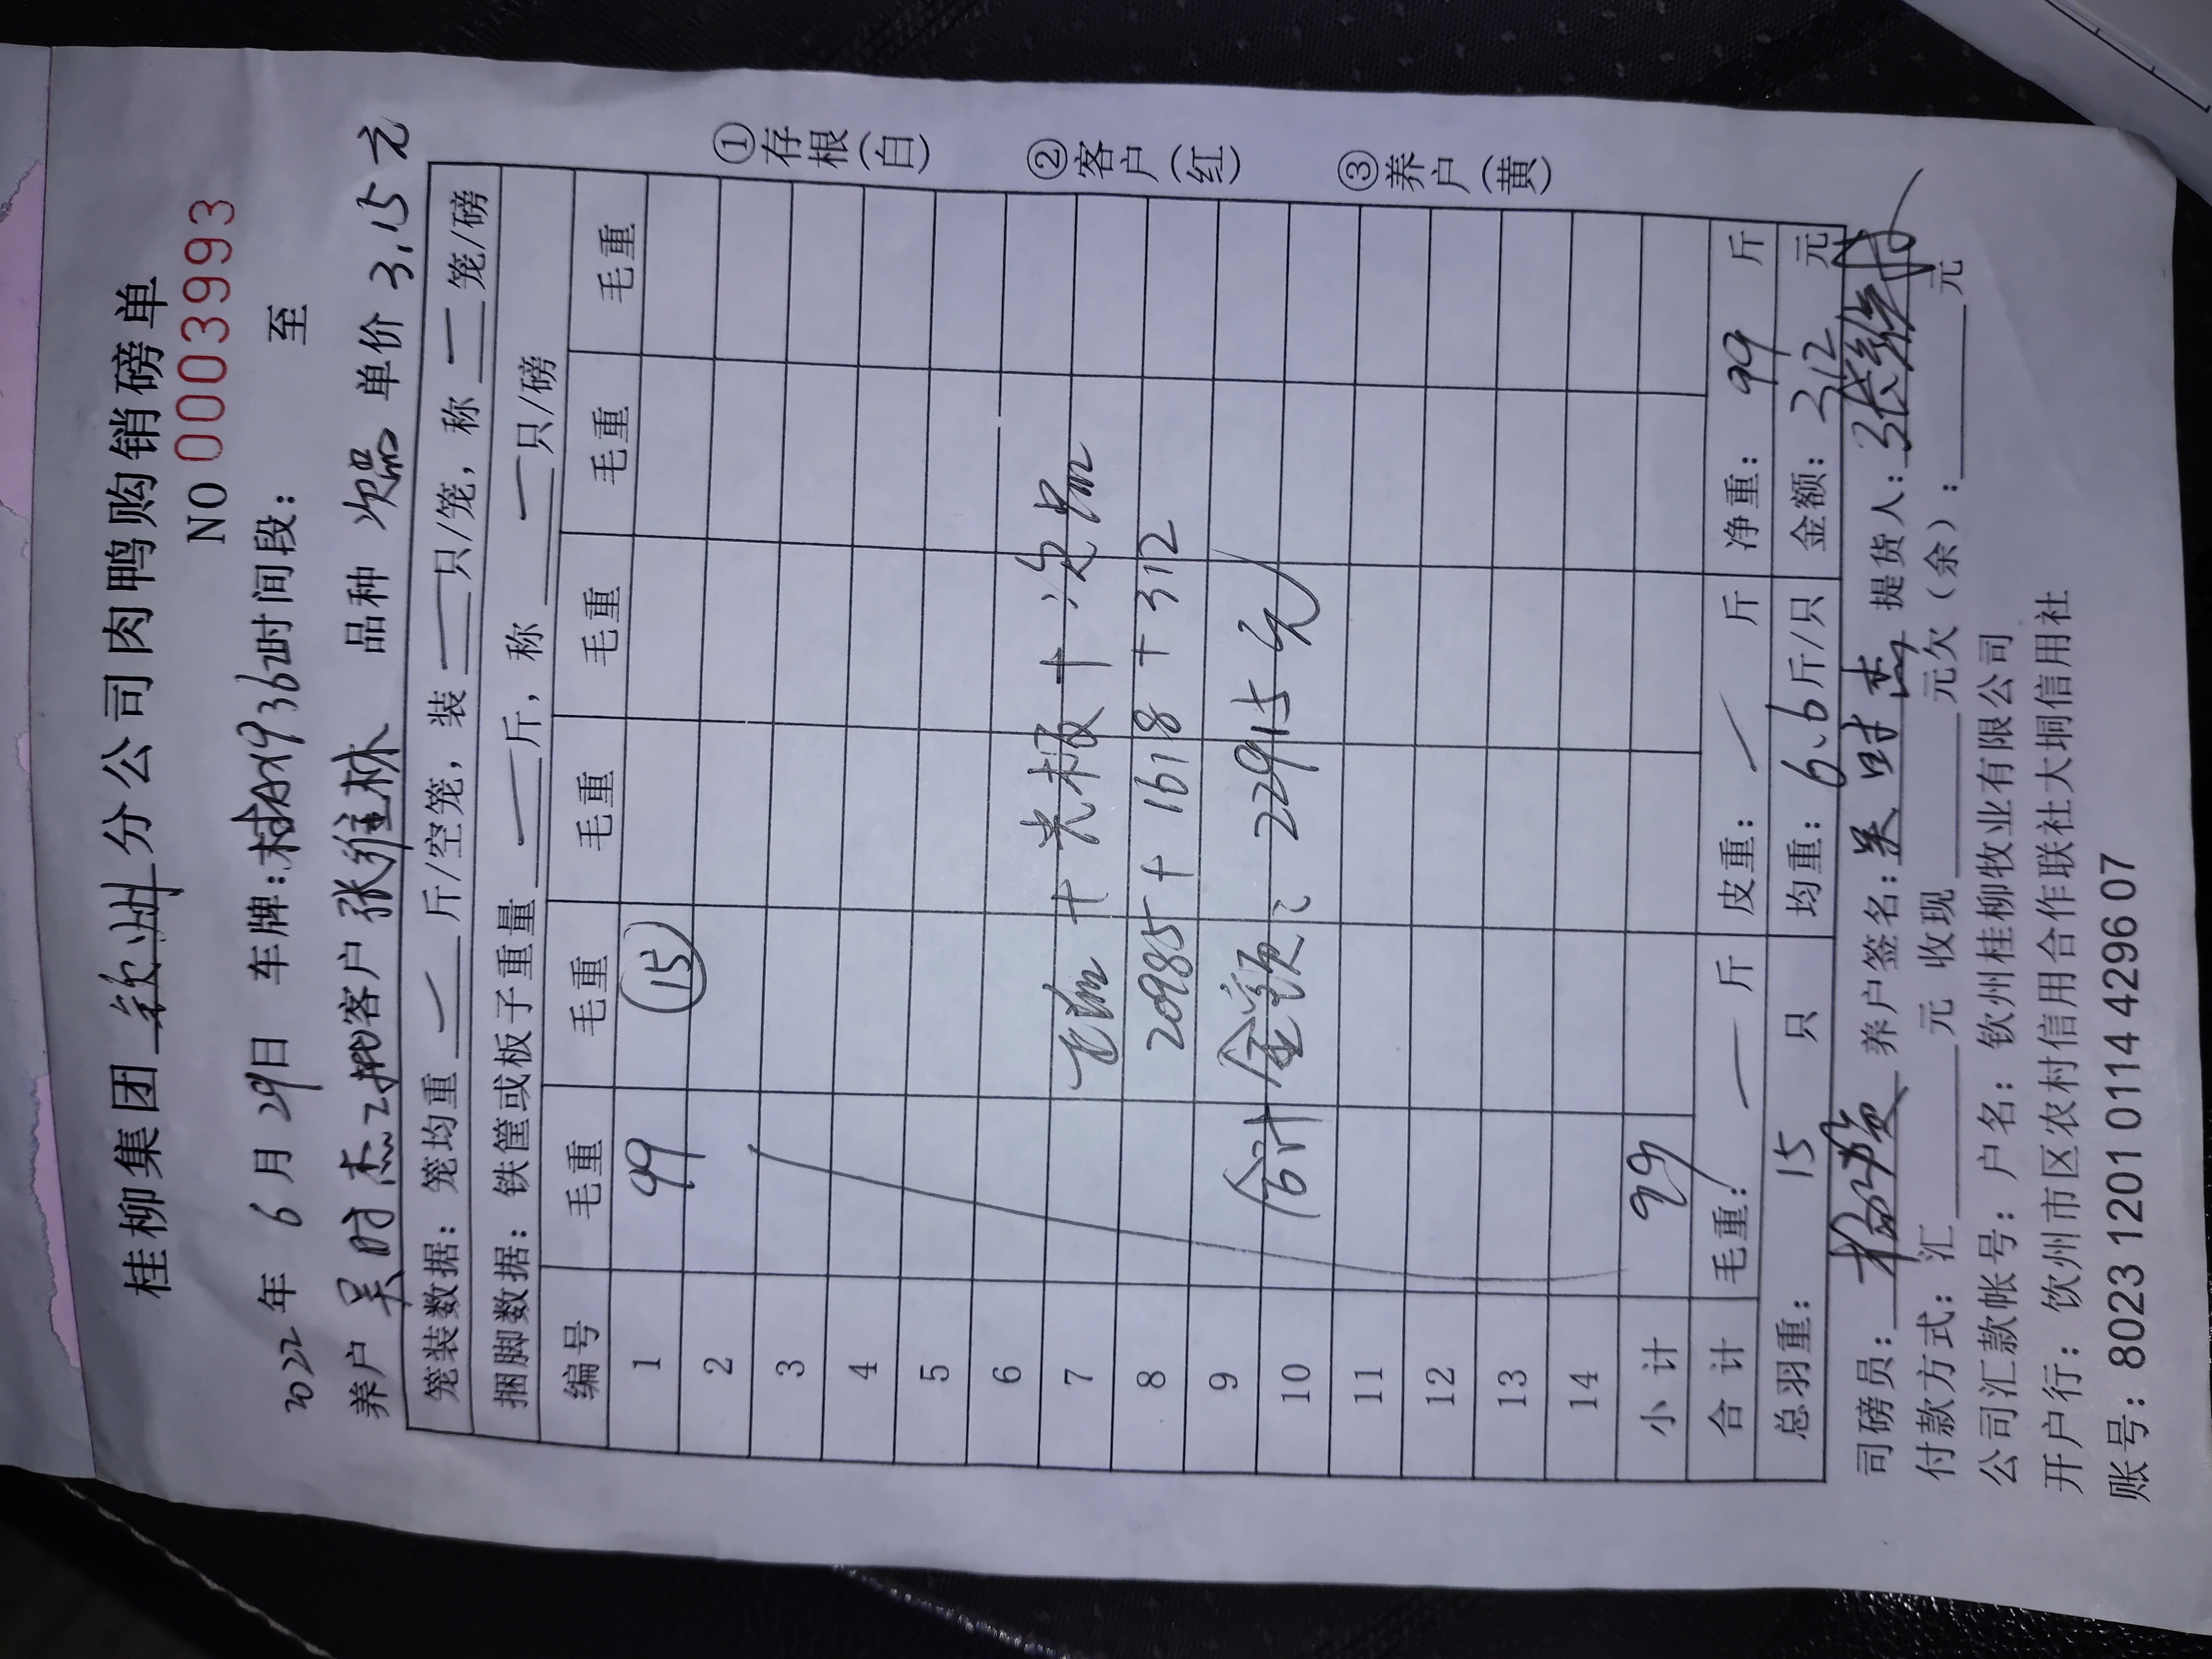 桂柳集团 钦州 分公司肉鸭购销磅单
NO 0003993
2022年 6月29日 车牌: 时间段: 至
养户 吴时杰2批 客户 张维林 品种 次品 单价 3.15元
笼装数据：笼均重 一 斤/空笼，装 一 只/笼，称 一 笼/磅
捆脚数据：铁筐或板子重量 一 斤，称 一 只/磅
编号 毛重 毛重 毛重 毛重 毛重 毛重
1 99 ⑮
2
3
4
5
6
7 毛鸭 + 光板 + 次品
8 20985 + 1618 + 312
9
10 合计金额：22915元
11
12
13
14
小计 99
合计 毛重： 一 斤 皮重： 一 斤 净重： 99 斤
总羽重： 15 只 均重：6.6斤/只 金额：312 元
司磅员： 养户签名：吴时杰 提货人：张维林
付款方式：汇 元 收现 元欠（余）： 元
公司汇款帐号：户名：钦州桂柳牧业有限公司
开户行：钦州市区农村信用合作联社大垌信用社
账号：8023 1201 0114 4296 07
①存根(白)
②客户(红)
③养户(黄)